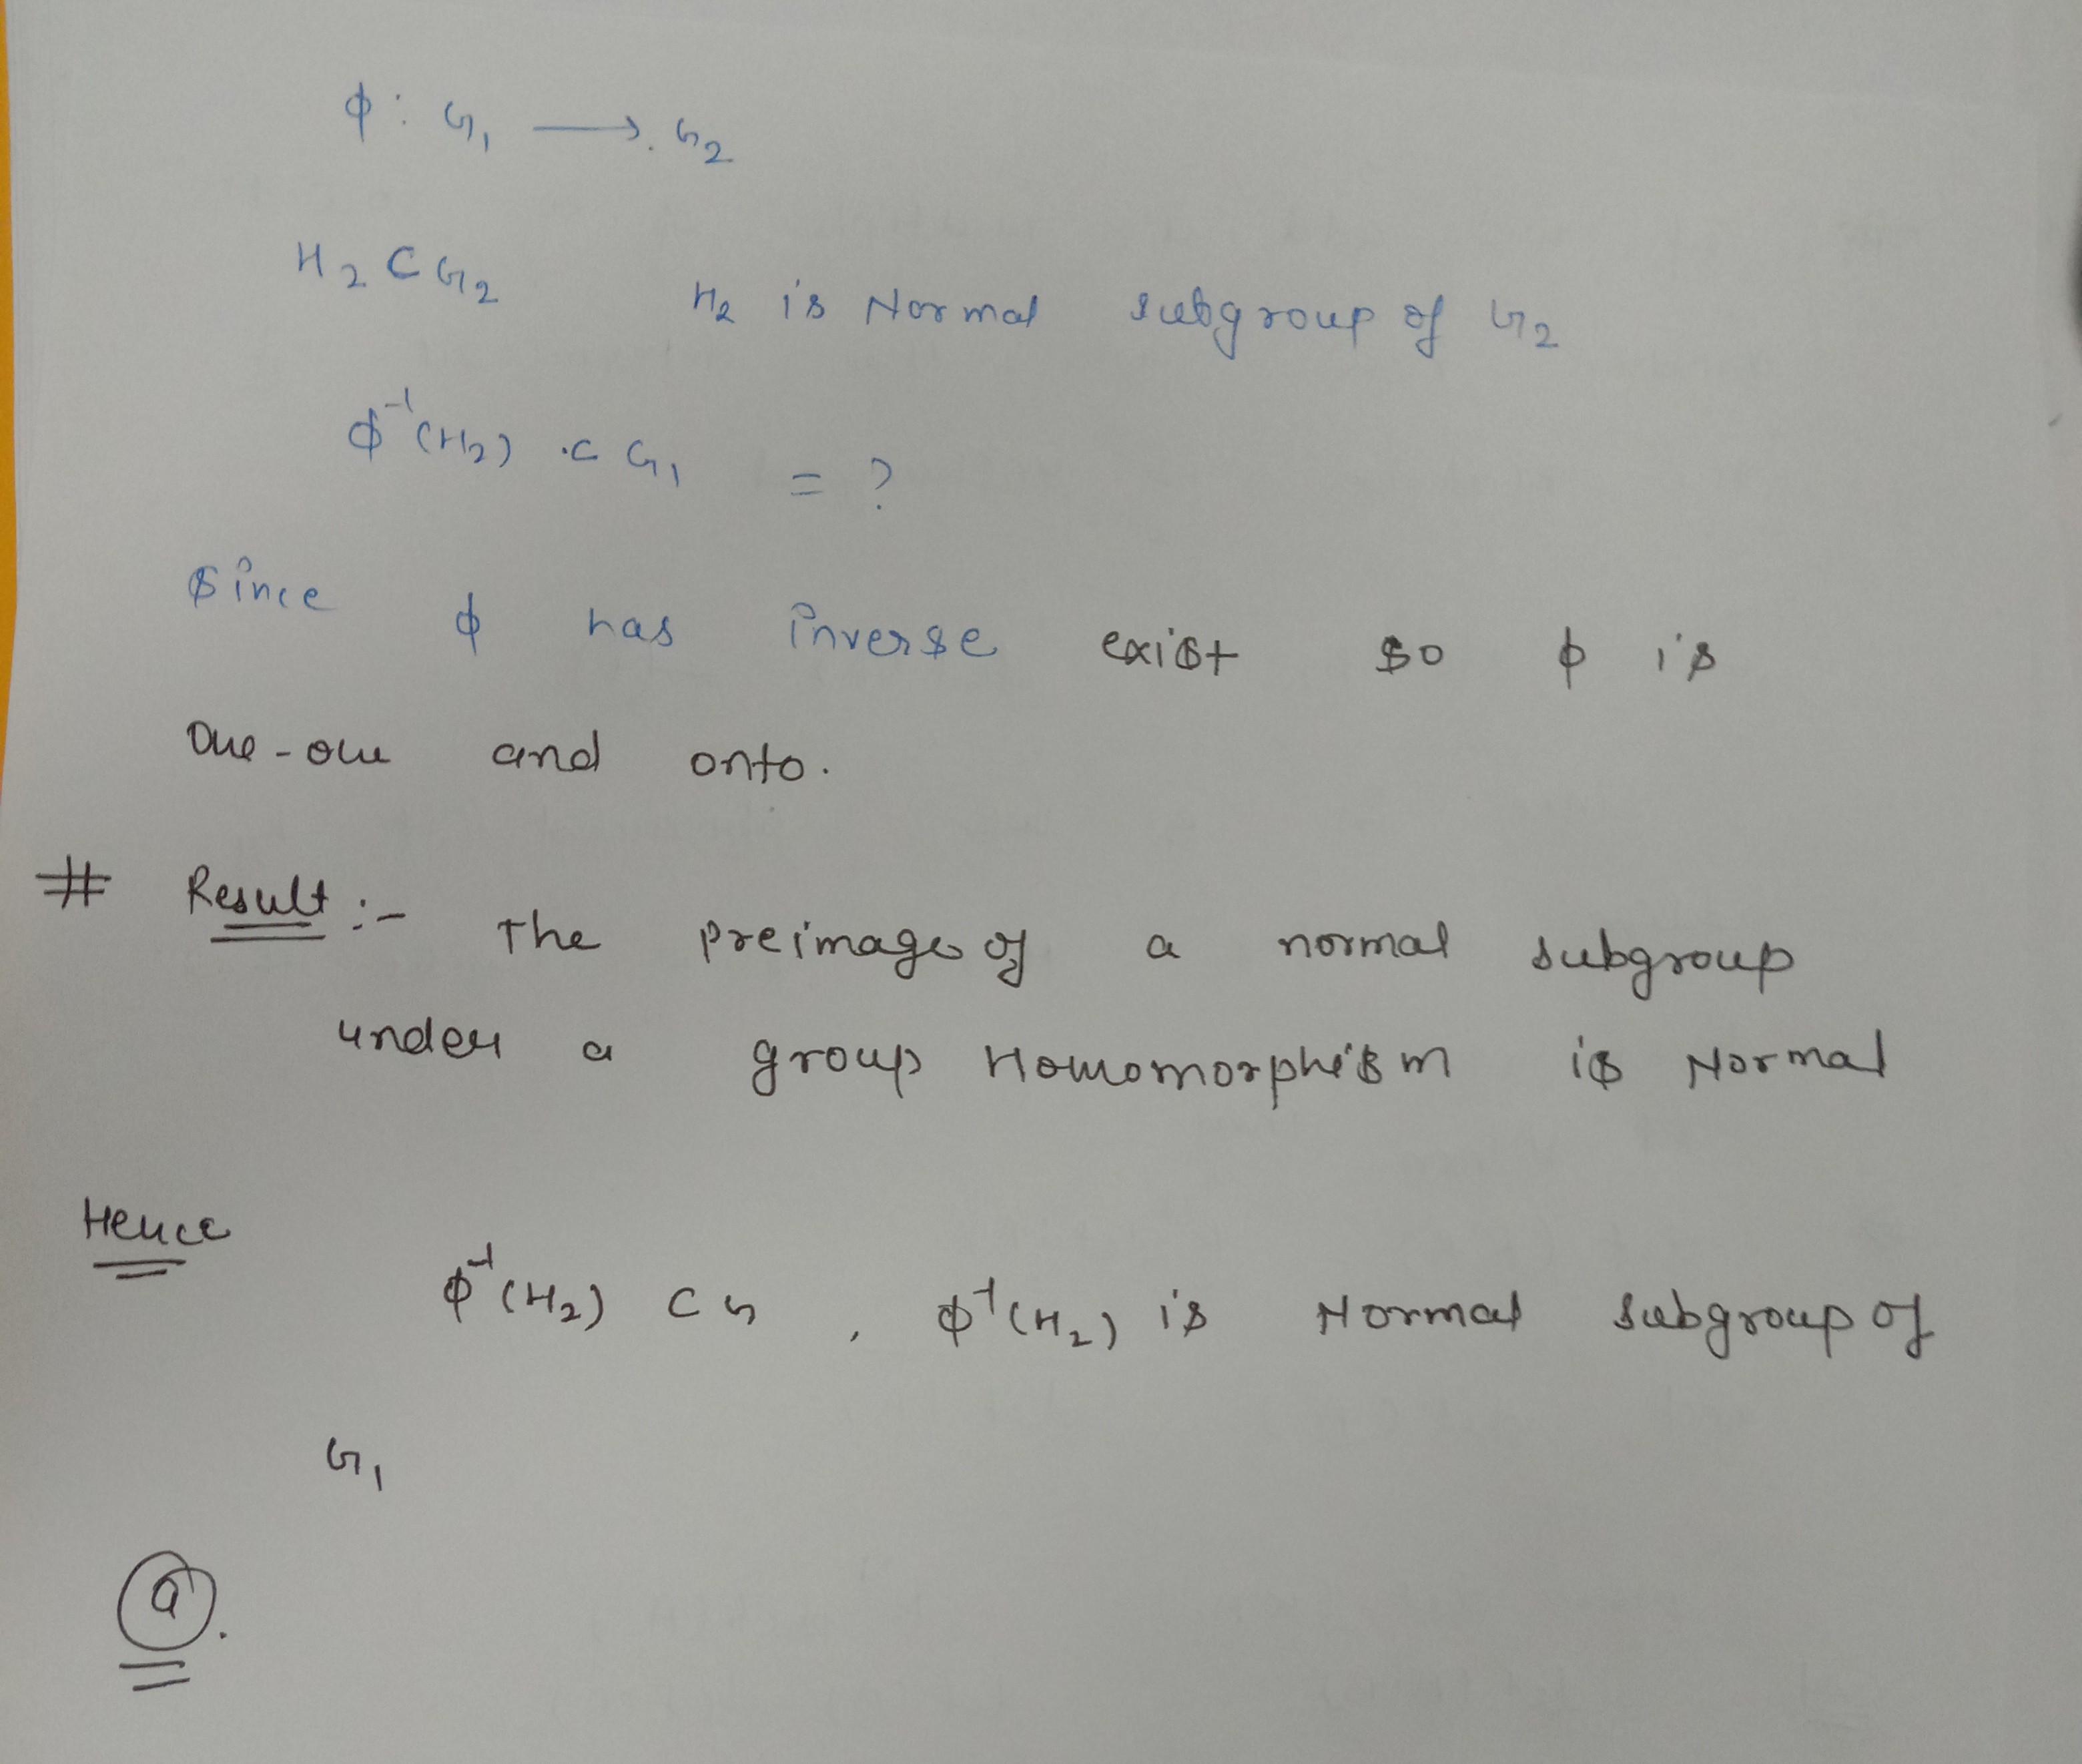 ϕ : G₁ ⟶ G₂
H₂ ⊂ G₂ H₂ is Normal subgroup of G₂
ϕ⁻¹(H₂) ⊂ G₁ = ?
Since ϕ has inverse exist so ϕ is
one-one and onto.
# Result :- The preimage of a normal subgroup
under a group Homomorphism is Normal
Hence
ϕ⁻¹(H₂) ⊂ G , ϕ⁻¹(H₂) is Normal subgroup of
G₁
ⓐ.